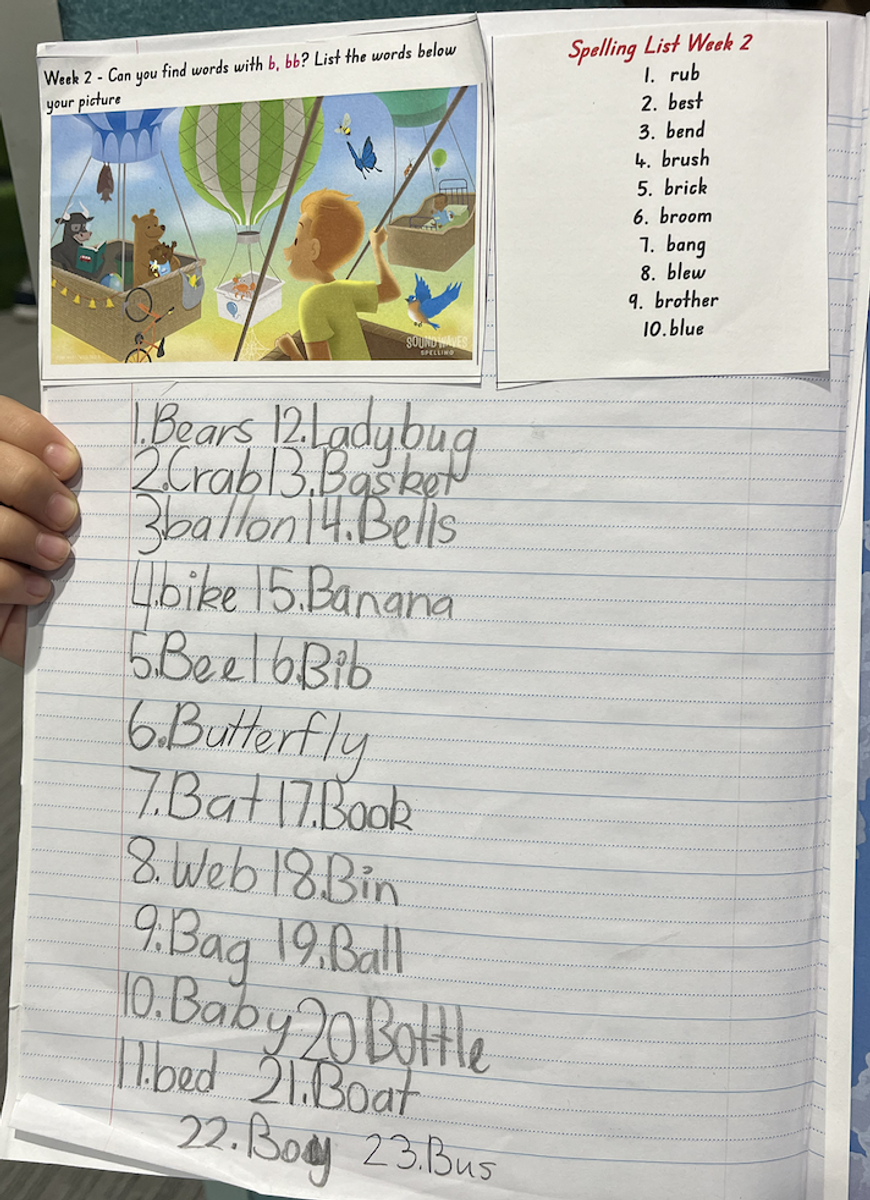 Week 2 - Can you find words with b, bb? List the words below
your picture
SOUND WAVES
SPELLING
Spelling List Week 2
1. rub
2. best
3. bend
4. brush
5. brick
6. broom
7. bang
8. blew
9. brother
10.blue
1.Bears 12.Ladybug
2.Crab 13.Basket
3ballon 14.Bells
4.bike 15.Banana
5.Bee 16.Bib
6.Butterfly
7.Bat 17.Book
8.Web 18.Bin
9.Bag 19.Ball
10.Baby 20 Bottle
11.bed 21.Boat
22.Boy 23.Bus